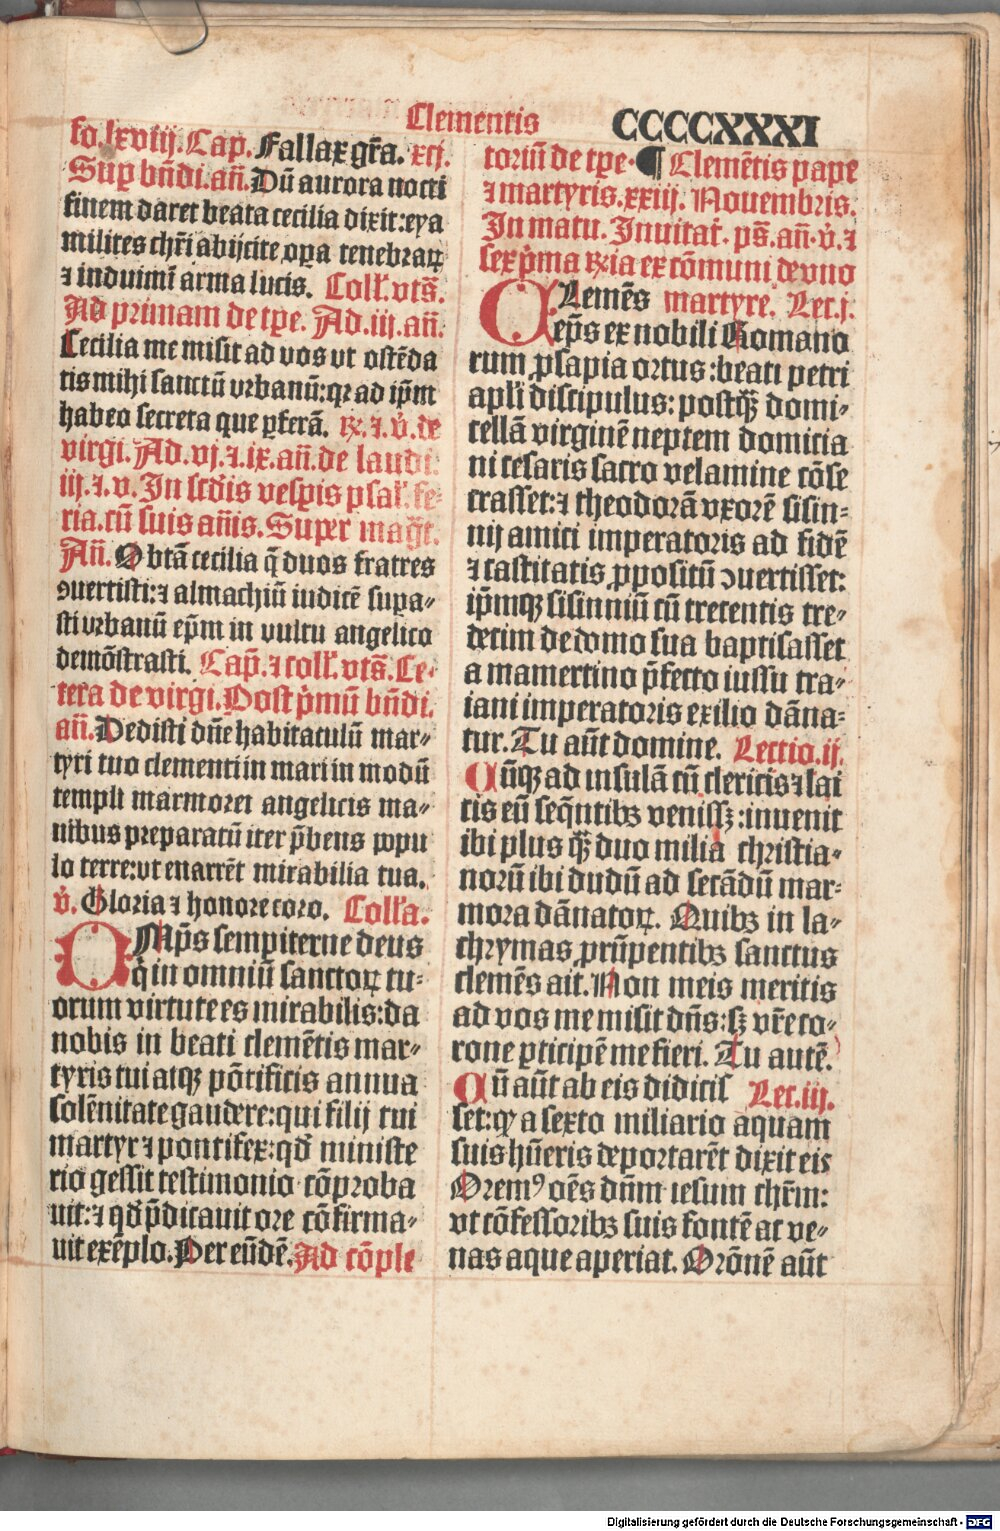 Clementis
CCCCXXXI
fo. lxviij. Cap. Fallax gr̄a. xcj.
Sup bn̄di. an̄. Dū aurora nocti
finem daret beata cecilia dixit: eya
milites chr̄i abijcite oꝑa tenebraꝝ
⁊ induimī arma lucis. Coll̄. vts̄.
Ad primam de tp̄e. Ad. iij. an̄.
Cecilia me misit ad vos vt ostēda
tis mihi sanctū vrbanū: qꝛ ad ip̄m
habeo secreta que ꝑferā. ℟. ⁊. v̄. de
virgi. Ad. vj. ⁊. ix. an̄. de laudi.
iij. ⁊. v. In scd̄is vesp̄is psal̄. fe⸗
ria. cū suis an̄is. Super maḡt.
An̄. O btā cecilia q̄ duos fratres
ꝯuertisti: ⁊ almachiū iudicē suꝑa⸗
sti vrbanū ep̄m in vultu angelico
demōstrasti. Cap̄. ⁊ coll̄. vts̄. Ce⸗
tera de virgi. Post p̄mū bn̄di.
an̄. Dedisti dn̄e habitaculū mar⸗
tyri tuo clementi in mari in modū
templi marmorei angelicis ma⸗
nibus preparatū iter p̄bens popu
lo terre: vt enarrēt mirabilia tua.
v̄. Gloria ⁊ honore coro. Coll̄a.
OMp̄s sempiterne deus
q̄ in omniū sanctoꝝ tu⸗
orum virtute es mirabilis: da
nobis in beati clemētis mar⸗
tyris tui atqꝫ pōtificis annua
solēnitate gaudere: qui filij tui
martyr ⁊ pontifex: qd̄ ministe
rio gessit testimonio cōproba
uit: ⁊ qd̄ p̄dicauit ore cōfirma⸗
uit exēplo. Per eūdē. Ad cōple
toriū de tp̄e. ¶ Clemētis pape
⁊ martyris. xxiij. Nouembris.
In matu. Inuitat̄. ps̄. an̄. v̄. ⁊
sex p̄ma ℟ia ex cōmuni de vno
CLemēs martyre. Lec. j.
ep̄s ex nobili Romano
rum ꝓsapia ortus: beati petri
apl̄i discipulus: postqꝫ̄ domi⸗
cellā virginē neptem domicia
ni cesaris sacro velamine cōse
crasset: ⁊ theodorā vxorē sisin⸗
nij amici imperatoris ad fidē
⁊ castitatis ꝓpositū ꝯuertisset:
ip̄mqꝫ sisinniū cū trecentis tre⸗
decim de domo sua baptisasset
a mamertino p̄fecto iussu tra⸗
iani imperatoris exilio dāna⸗
tur. Tu aūt domine. Lectio. ij.
Cūqꝫ ad insulā cū clericis ⁊ lai
cis eū seq̄ntibꝫ venissꝫ: inuenit
ibi plus qꝫ̄ duo milia christia⸗
norū ibi dudū ad secādū mar⸗
mora dānatoꝝ. Quibꝫ in la⸗
chrymas ꝓrūpentibꝫ sanctus
clemēs ait. Non meis meritis
ad vos me misit dn̄s: sꝫ vr̄e co⸗
rone ꝑticipē me fieri. Tu autē.
Cū aūt ab eis didicis Lec. iij.
set: qꝙ a sexto miliario aquam
suis hūeris deportarēt dixit eis
Oremꝰ oēs dn̄m iesum chr̄m:
vt cōfessoribꝫ suis fontē ac ve⸗
nas aque aperiat. Orōnē aūt
Digitalisierung gefördert durch die Deutsche Forschungsgemeinschaft - DFG